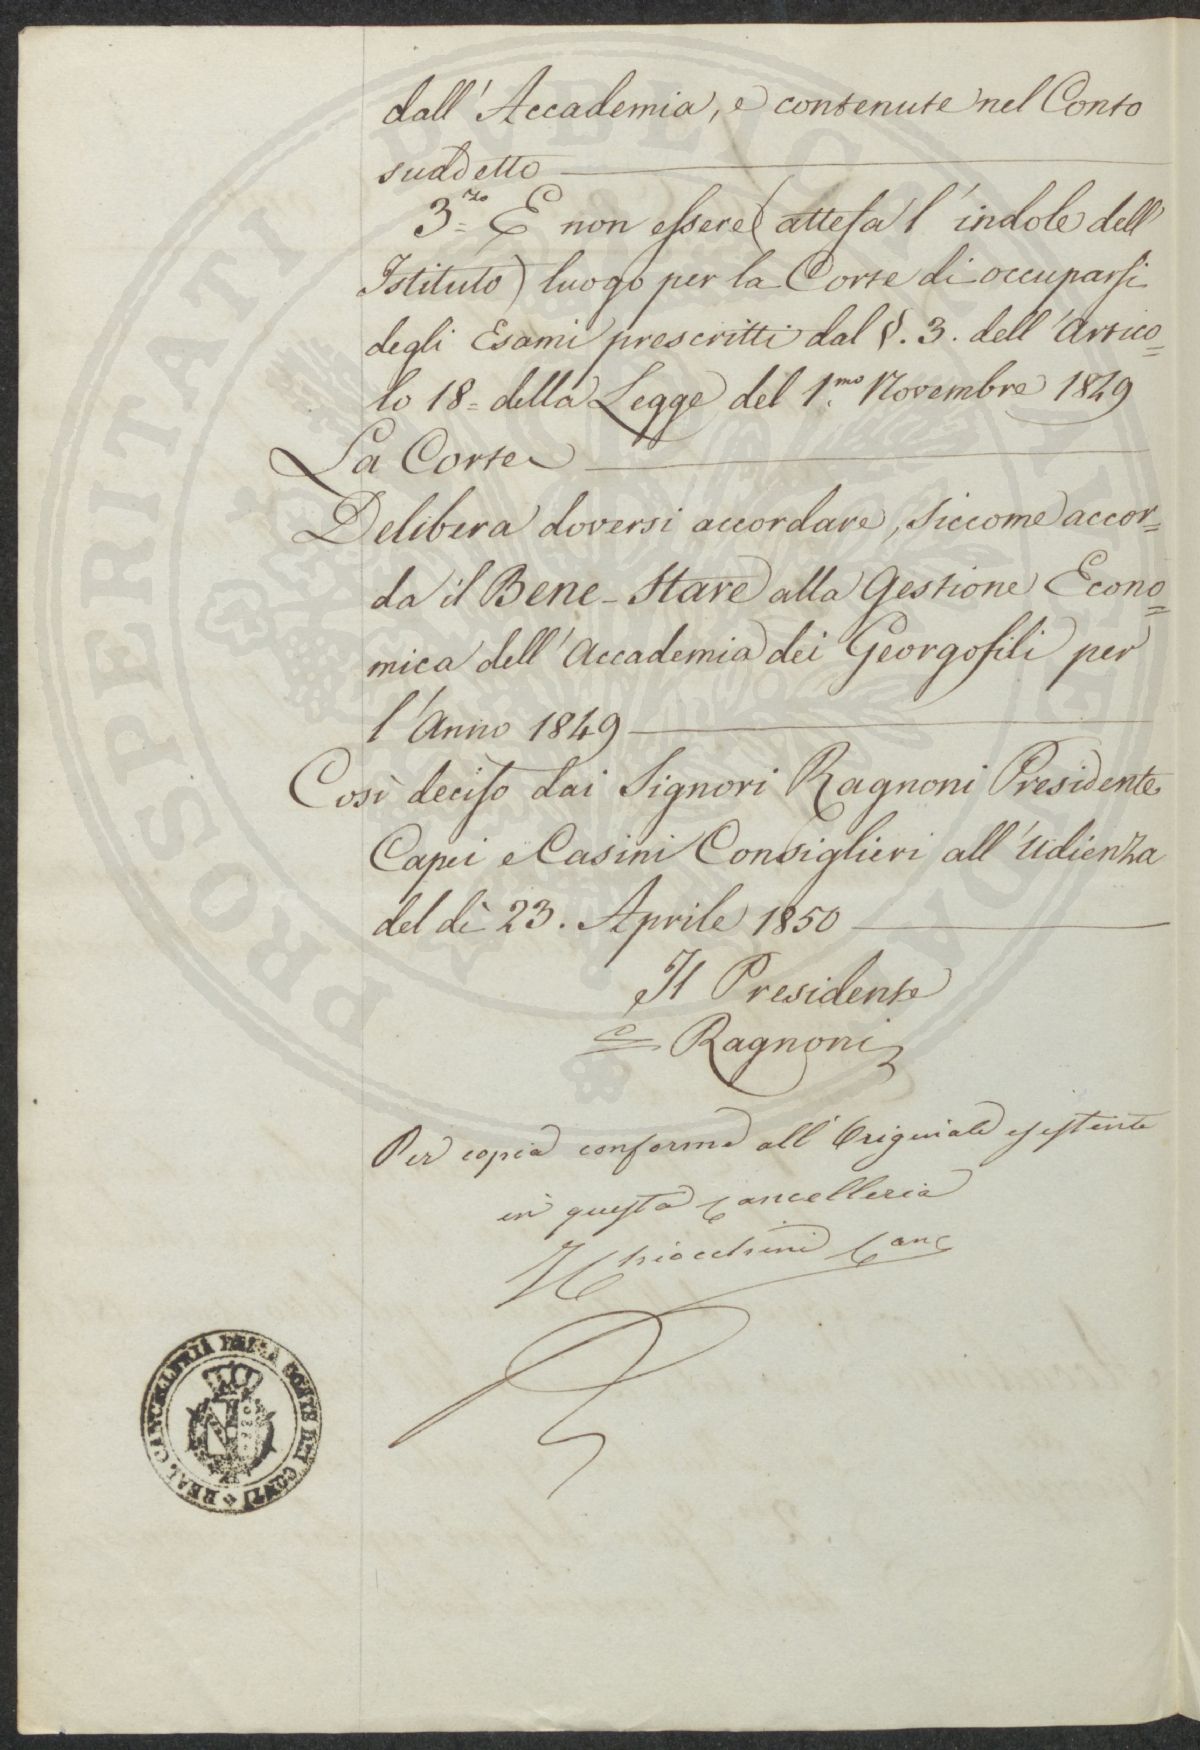 dall'Accademia, e contenute nel Conto
suddetto
3.zo E non essere (attesa l'indole dell'
Istituto) luogo per la Corte di occuparsi
degli Esami prescritti dal §. 3. dell'Artico=
lo 18= della Legge del 1.mo Novembre 1849
La Corte
Delibera doversi accordare, siccome accor=
da il Bene-Stare alla Gestione Econo=
mica dell'Accademia dei Georgofili per
l'Anno 1849
Così deciso dai Signori Ragnoni Presidente
Capei e Casini Consiglieri all'Udienza
del dì 23. Aprile 1850
Il Presidente
= Ragnoni
Per copia conforme all'Originale esistente
in questa Cancelleria
Chiocchini Canc
REAL CANCELLERIA DELLA CORTE DEI CONTI
PROSPERITATI PUBLICAE AUGENDAE